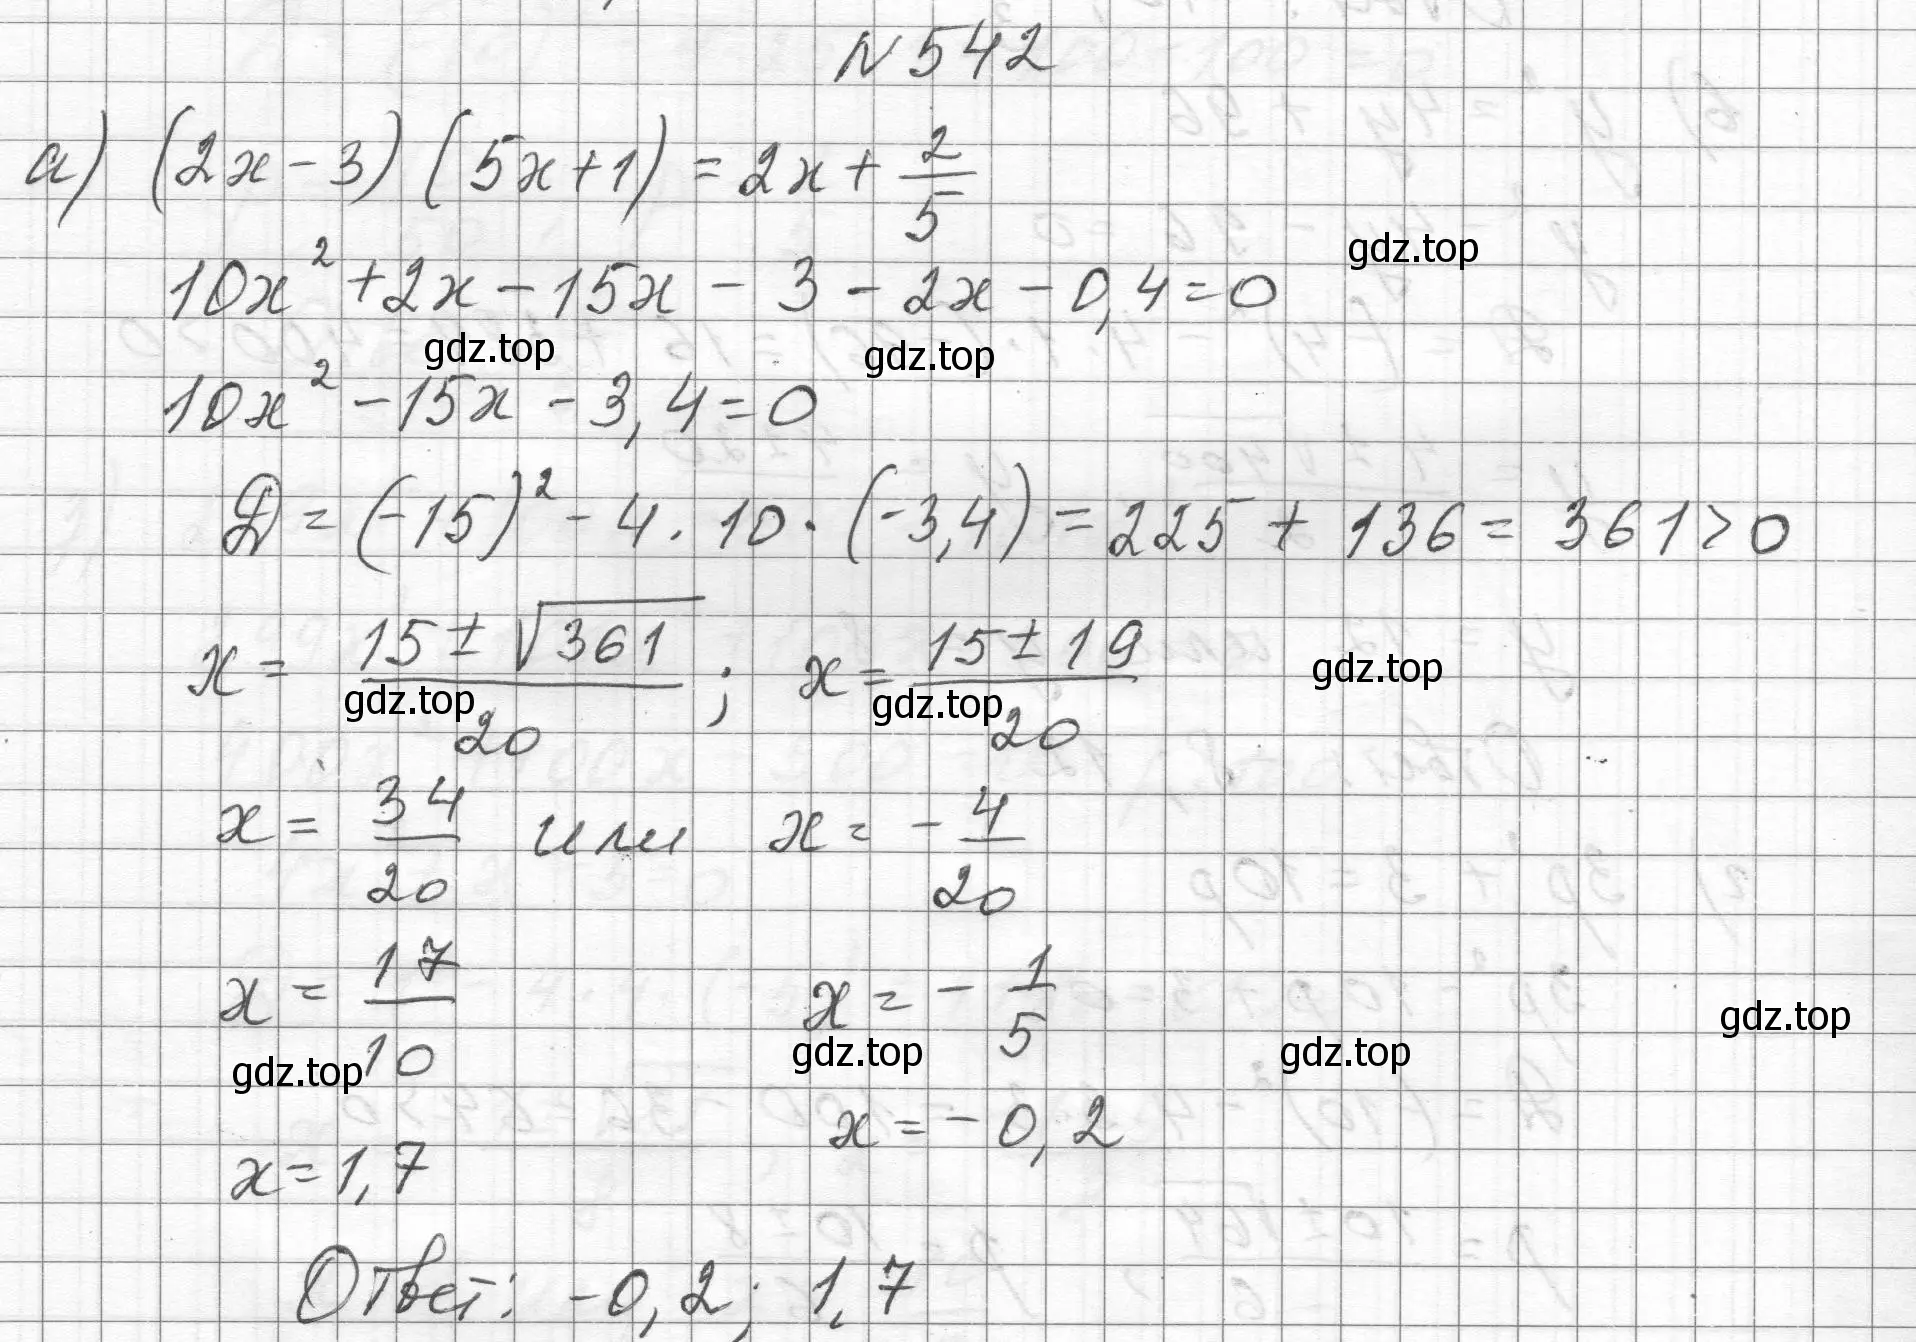 N 542
а) (2x - 3) (5x + 1) = 2x + 2/5
10x² + 2x - 15x - 3 - 2x - 0,4 = 0
gdz.top
gdz.top gdz.top
10x² - 15x - 3,4 = 0
D = (-15)² - 4 · 10 · (-3,4) = 225 + 136 = 361 > 0
x = (15 ± √361)/20 ; x = (15 ± 19)/20
gdz.top
gdz.top gdz.top
x = 34/20 или x = - 4/20
x = 17/10 x = - 1/5
gdz.top
gdz.top gdz.top gdz.top
x = - 0,2
x = 1,7
Ответ: -0,2; 1,7